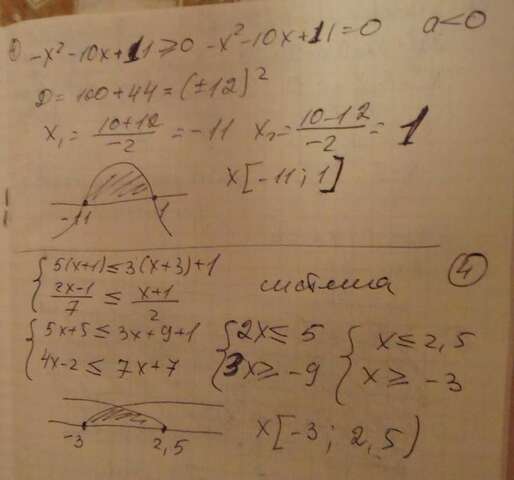 -x²-10x+11≥0 -x²-10x+11=0 a<0
D=100+44=(±12)²
x₁=(10+12)/(-2)=-11 x₂=(10-12)/(-2)=1
x[-11; 1]
-11 1
{5(x+1)≤3(x+3)+1
(2x-1)/7 ≤ (x+1)/2 система 4
{5x+5≤3x+9+1 {2x≤5 {x≤2,5
4x-2≤7x+7 3x≥-9 x≥-3
-3 2,5 x[-3; 2,5)